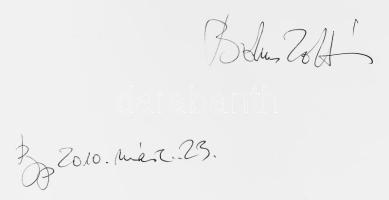 Bohus Zoltán
darabanth
Bp. 2010. márc. 23.